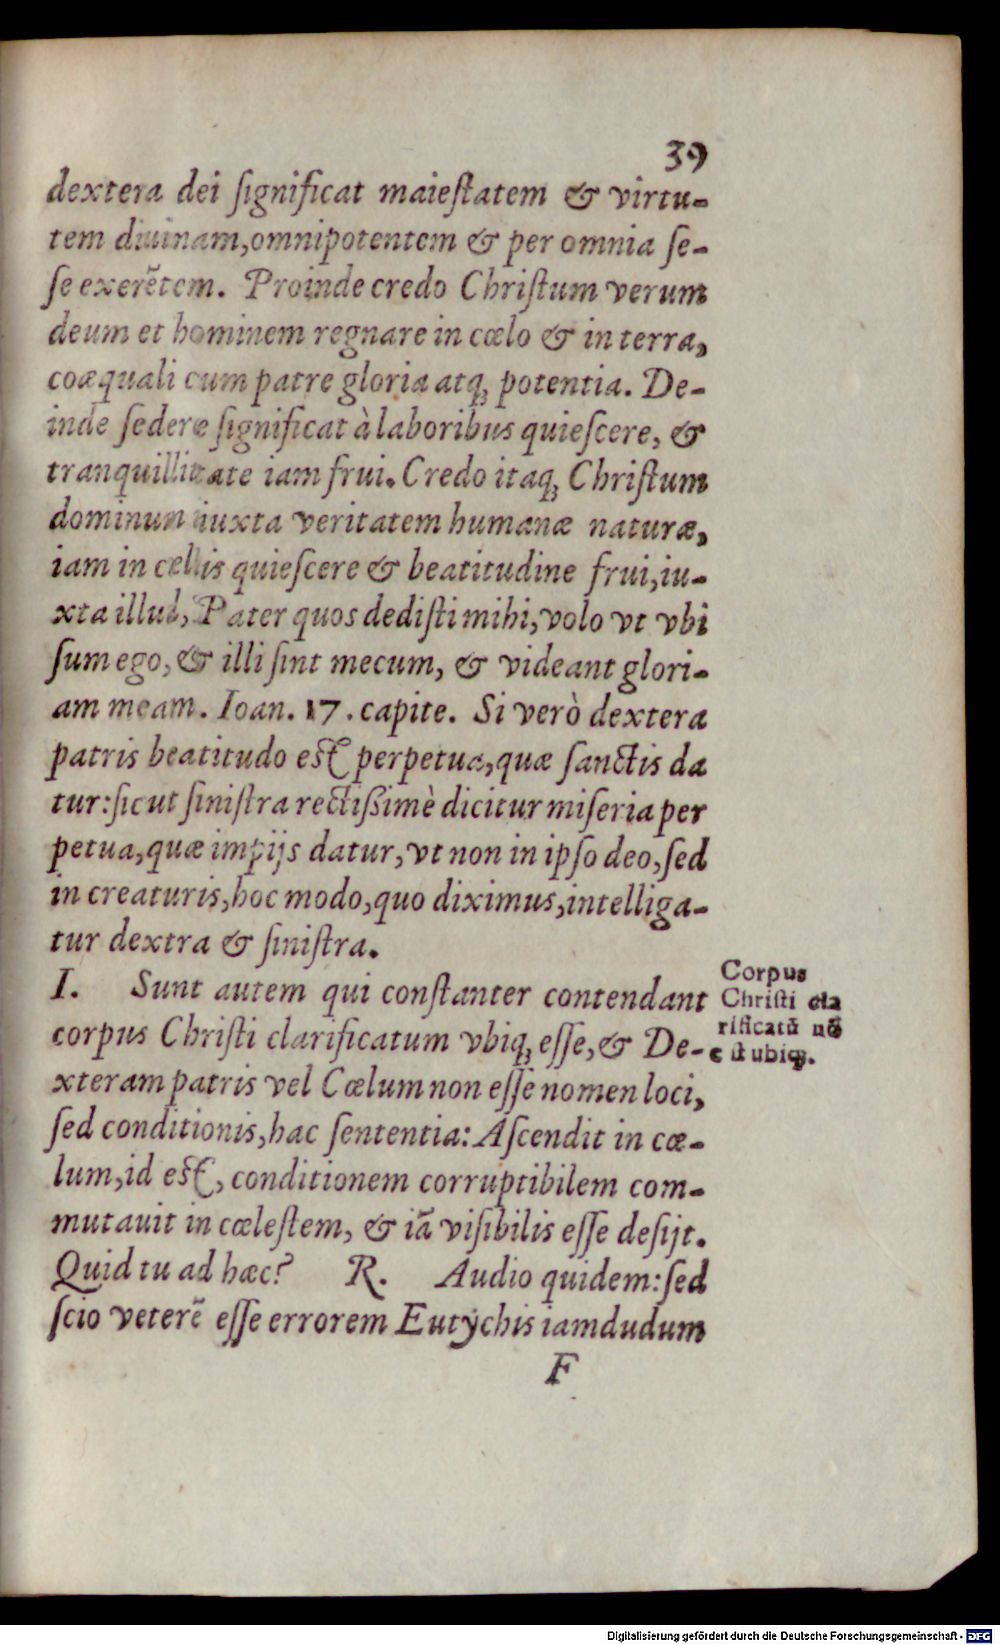 39
dextera dei ſignificat maieſtatem & virtu-
tem diuinam, omnipotentem & per omnia ſe-
ſe exerẽtem. Proinde credo Chriſtum verum
deum et hominem regnare in cœlo & in terra,
coæquali cum patre gloria atq; potentia. De-
inde ſedere ſignificat à laboribus quieſcere, &
tranquillitate iam frui. Credo itaq; Chriſtum
dominum iuxta veritatem humanæ naturæ,
iam in cœlis quieſcere & beatitudine frui, iu-
xta illud, Pater quos dediſti mihi, volo vt vbi
ſum ego, & illi ſint mecum, & videant glori-
am meam. Ioan. 17. capite. Si verò dextera
patris beatitudo eſt perpetua, quæ ſanctis da
tur: ſicut ſiniſtra rectiſſimè dicitur miſeria per
petua, quæ impijs datur, vt non in ipſo deo, ſed
in creaturis, hoc modo, quo diximus, intelliga-
tur dextra & ſiniſtra.
I. Sunt autem qui conſtanter contendant
corpus Chriſti clarificatum vbiq; eſſe, & De-
xteram patris vel Cœlum non eſſe nomen loci,
ſed conditionis, hac ſententia: Aſcendit in cœ-
lum, id eſt, conditionem corruptibilem com-
mutauit in cœleſtem, & iã viſibilis eſſe deſijt.
Quid tu ad hæc? R. Audio quidem: ſed
ſcio veterẽ eſſe errorem Eutychis iamdudum
F
Corpus
Chriſti cla
rificatũ nõ
eſt ubiq;.
Digitalisierung gefördert durch die Deutsche Forschungsgemeinschaft - DFG